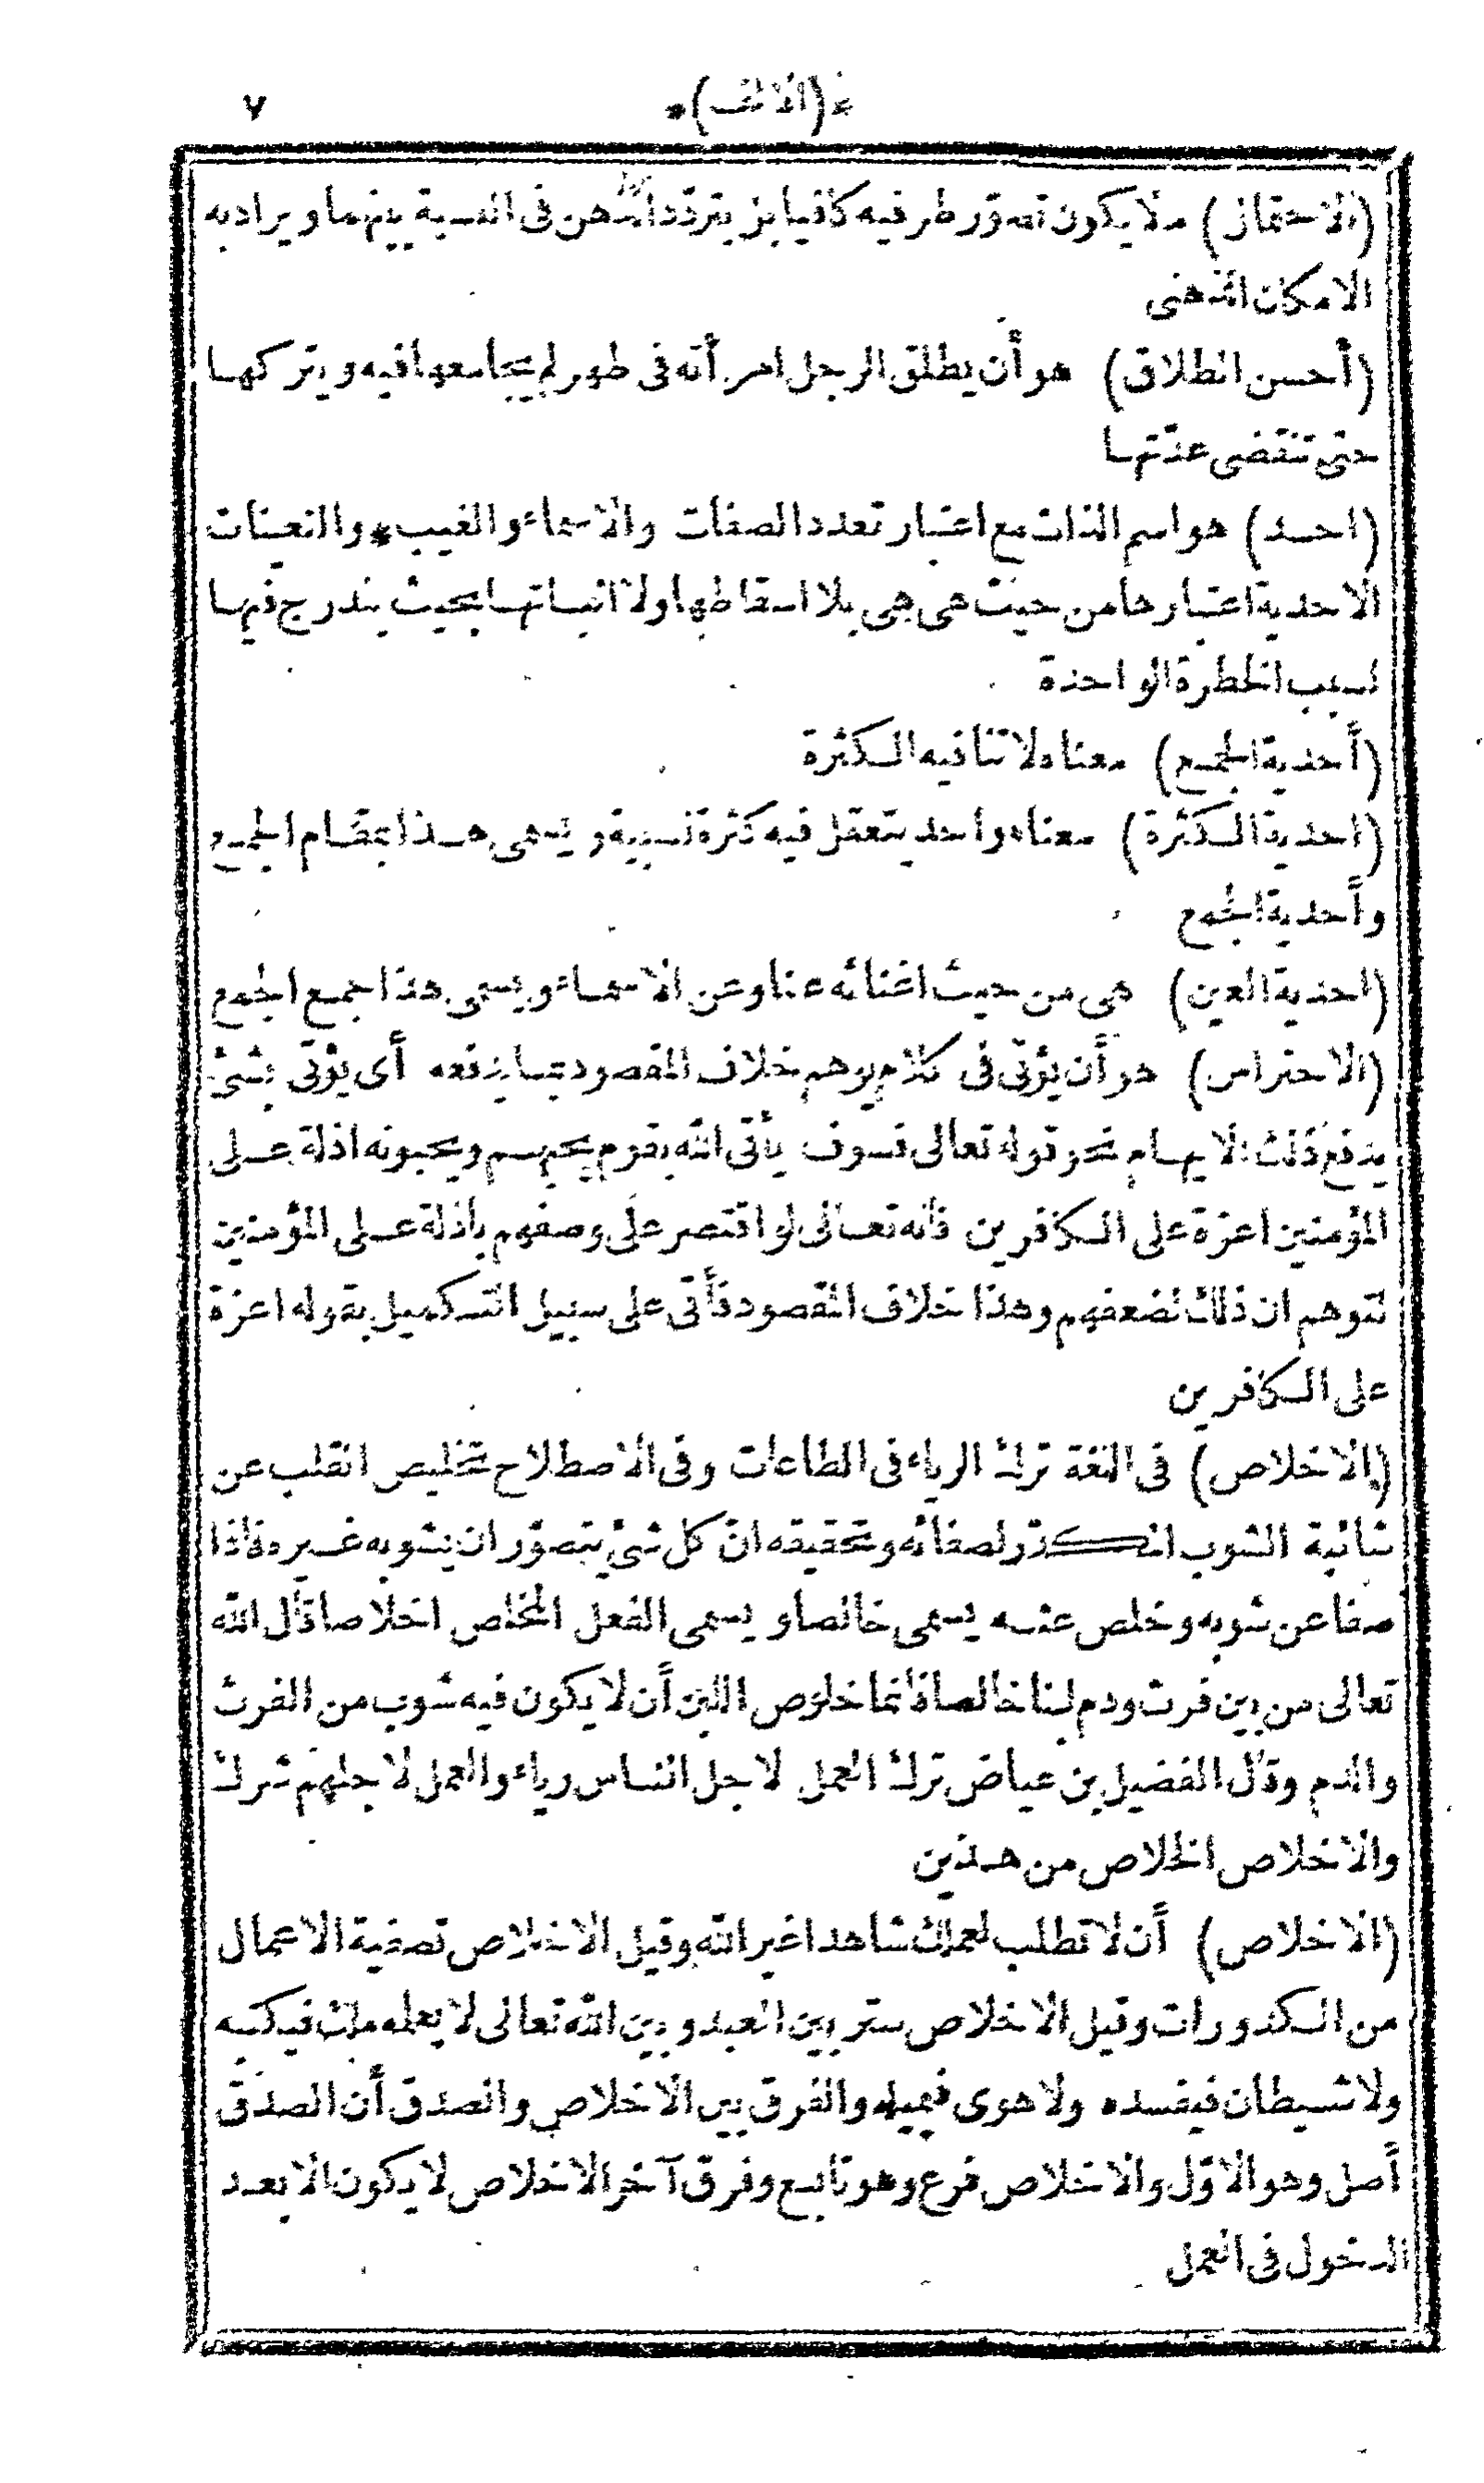 *(الالف)* ٧
(الاحتمال) مالا يكون تصوّر طرفيه كافيا بل يتردّد الذهن فى النسبة بينهما ويراد به
الامكان الذهنى
(أحسن الطلاق) هو أن يطلق الرجل امرأته فى طهر لم يجامعها فيه ويتركها
حتى تنقضى عدّتها
(احد) هو اسم الذات مع اعتبار تعدد الصفات والاسماء والغيب* والتعينات
الاحدية اعتبارها من حيث هى هى بلا اسقاطها ولا اثباتها بحيث يندرج فيها
لسبب الحظرة الواحدة
(أحدية الجمع) معناه لا تنافيه الكثرة
(احدية الكثرة) معناه واحد يتعقل فيه كثرة نسبية ويسمى هذا بمقام الجمع
وأحدية الجمع
(احدية العين) هى من حيث اغنائه عنا وعن الاسماء ويسمى هذا جمع الجمع
(الاحتراس) هو أن يؤتى فى كلام يوهم خلاف المقصود بما يدفعه أى يؤتى بشئ
يدفع ذلك الايهام نحو قوله تعالى فسوف يأتى الله بقوم يحبهم ويحبونه اذلة على
المؤمنين اعزة على الكافرين فانه تعالى لو اقتصر على وصفهم باذلة على المؤمنين
لتوهم ان ذلك لضعفهم وهذا خلاف المقصود فأتى على سبيل التكميل بقوله اعزة
على الكافرين
(الاخلاص) فى اللغة ترك الرياء فى الطاعات وفى الاصطلاح تخليص القلب عن
شائبة الشوب المكدّر لصفائه وتحقيقه انّ كل شئ يتصوّر ان يشوبه غيره فاذا
صفا عن شوبه وخلص عنه يسمى خالصا ويسمى الفعل المخلص اخلاصا قال الله
تعالى من بين فرث ودم لبنا خالصا فانما خلوص اللبن أن لا يكون فيه شوب من الفرث
والدم وقال الفضيل بن عياض ترك العمل لاجل الناس رياء والعمل لاجلهم شرك
والاخلاص الخلاص من هذين
(الاخلاص) أن لا تطلب لعملك شاهدا غير الله وقيل الاخلاص تصفية الاعمال
من الكدورات وقيل الاخلاص ستر بين العبد وبين الله تعالى لا يعلمه ملك فيكتبه
ولا شيطان فيفسده ولا هوى فيميله والفرق بين الاخلاص والصدق أن الصدق
أصل وهو الاوّل والاخلاص فرع وهو تابع وفرق آخر الاخلاص لا يكون الا بعد
الدخول فى العمل